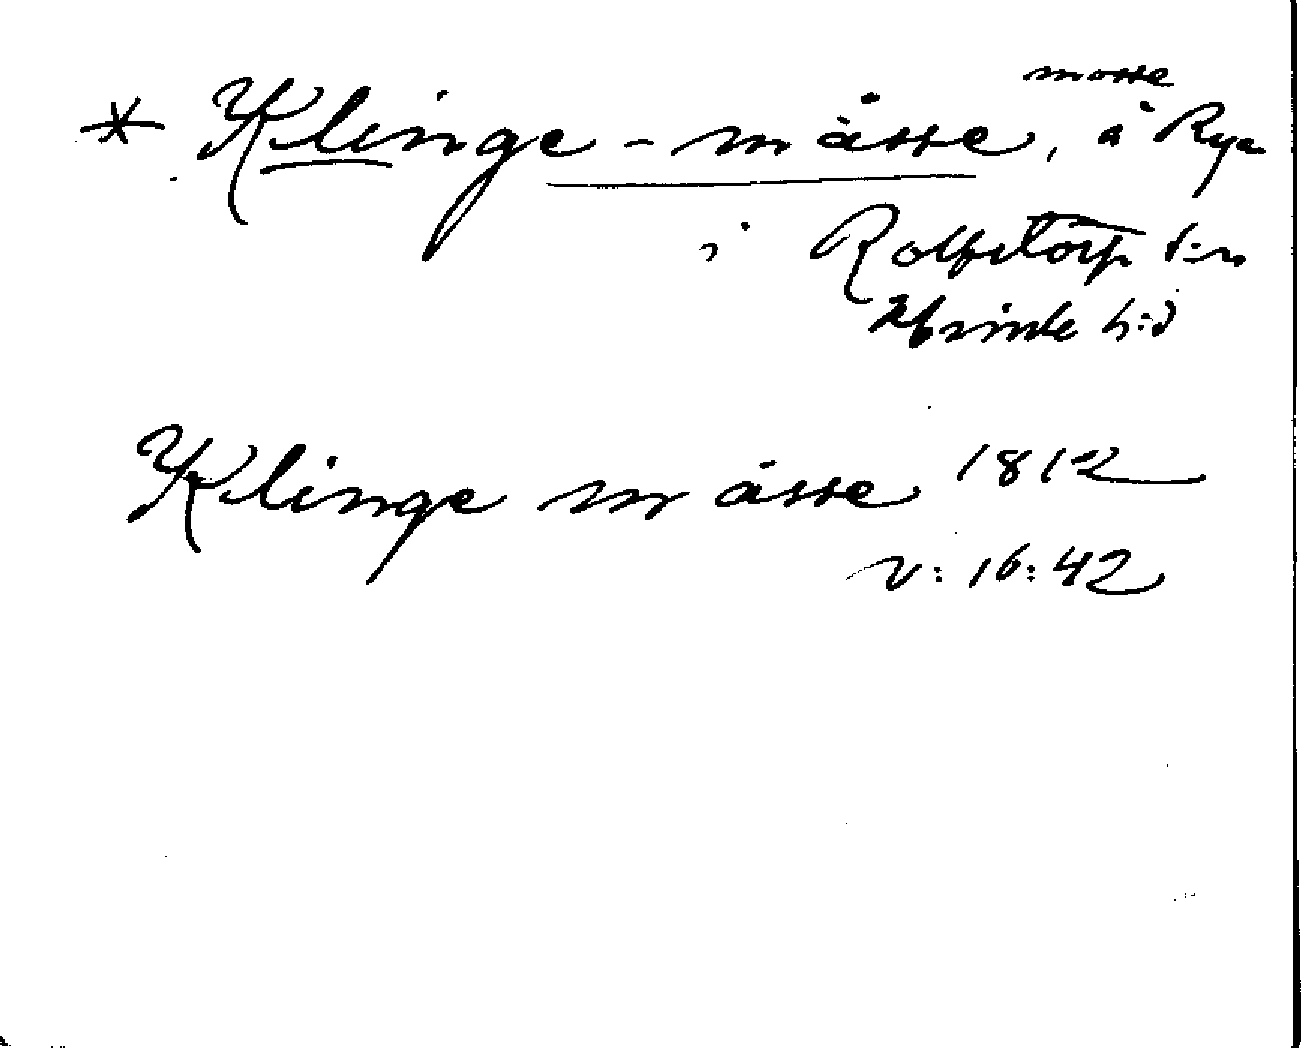 mosse
* Klinge-måsse, å Rya
i Rolfstorp s:n
Himle h:d
Klinge måsse 1812
v: 16: 42